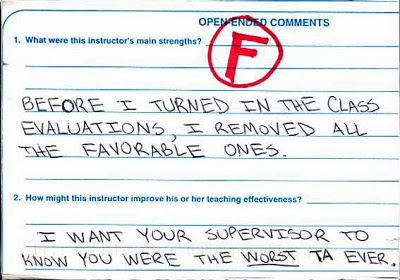 OPEN-ENDED COMMENTS
1. What were this instructor's main strengths?
F
BEFORE I TURNED IN THE CLASS
EVALUATIONS, I REMOVED ALL
THE FAVORABLE ONES.
2. How might this instructor improve his or her teaching effectiveness?
I WANT YOUR SUPERVISOR TO
KNOW YOU WERE THE WORST TA EVER.